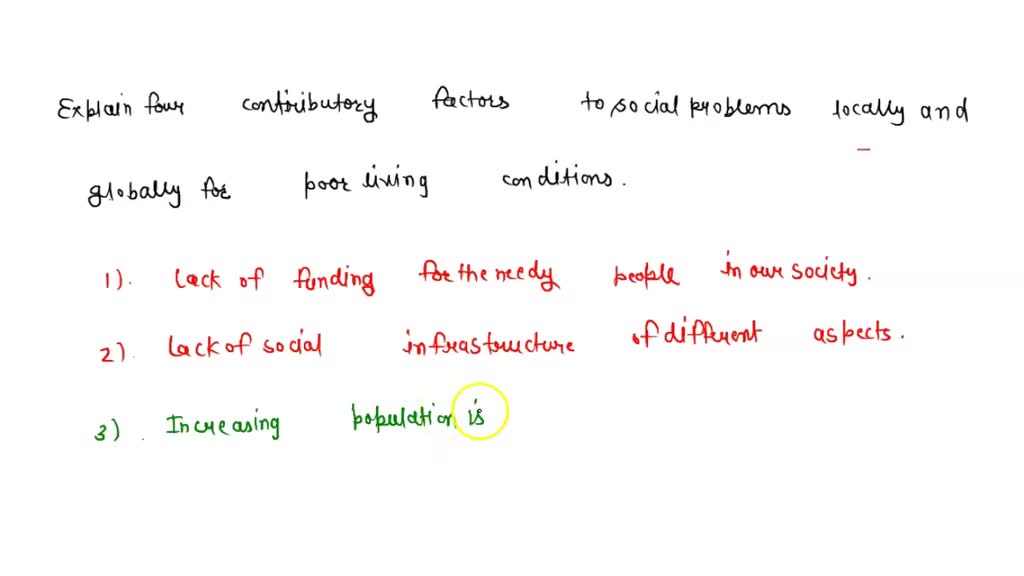 Explain four contributory factors to social problems locally and
globally for poor living conditions.
1). Lack of funding for the needy people in our society.
2). Lack of social infrastructure of different aspects.
3). Increasing population is